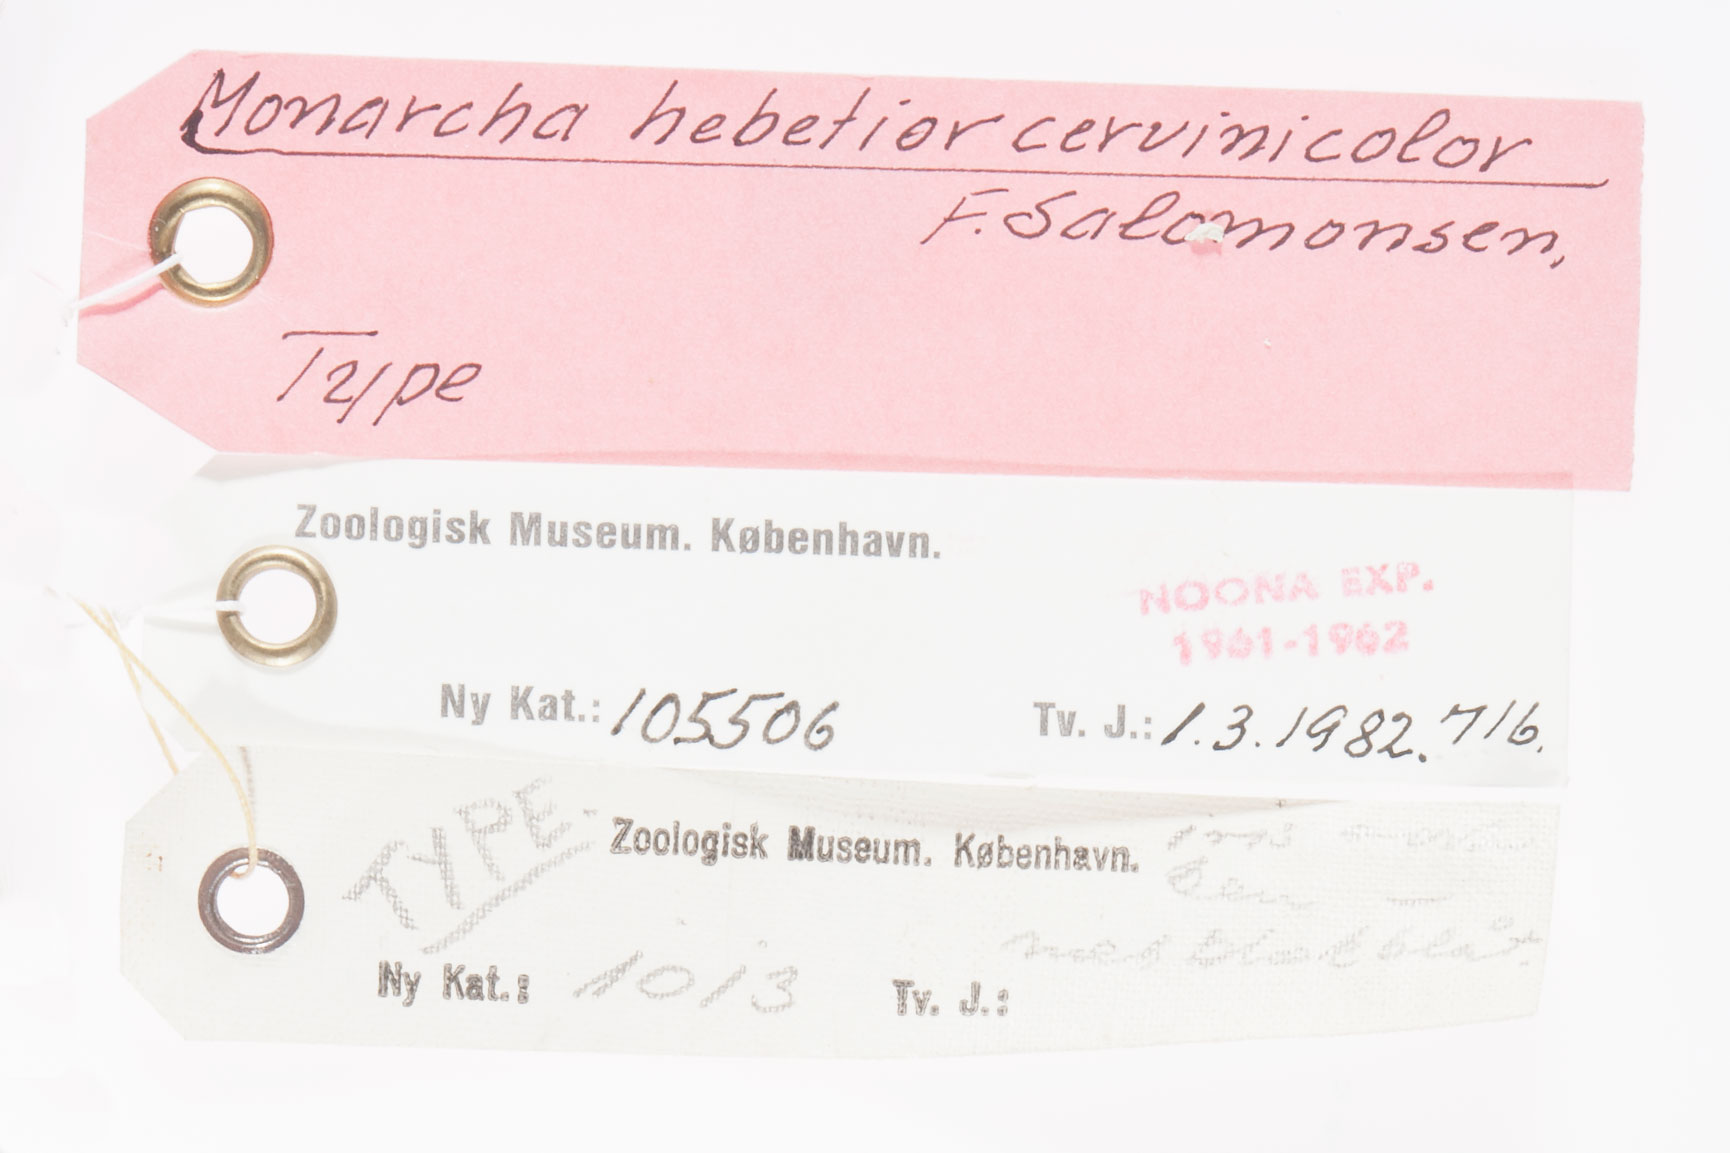 Monarcha hebetior cervinicolor
F. Salomonsen,
Type
Zoologisk Museum. København.
NOONA EXP.
1961-1962
Ny Kat.: 105506
Tv. J.: 1.3.1982.716.
TYPE.
Zoologisk Museum. København.
Ny Kat.: 1013
Tv. J.: